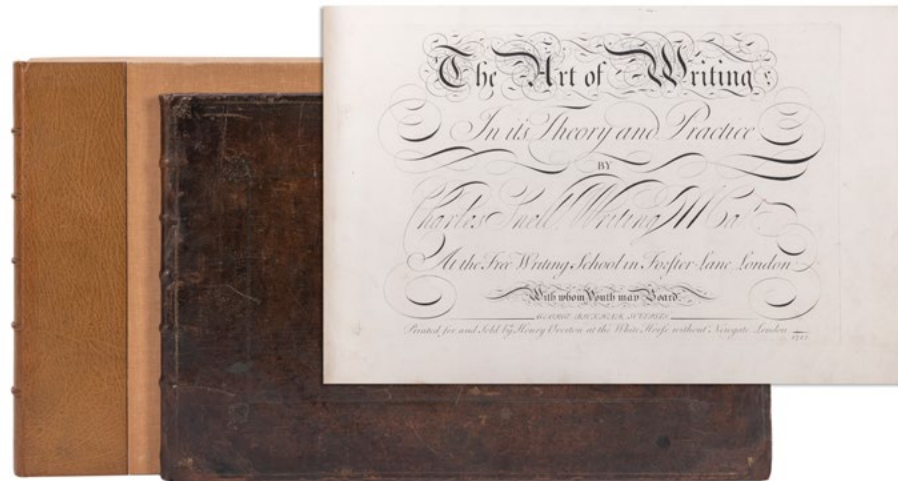 The Art of Writing
In its Theory and Practice
BY
Charles Snell Writing Ma.r
At the Free Writing School in Foster-Lane London
With whom Youth may Board.
GEORGE BICKHAM SCULPSIT
Printed for and Sold by Henry Overton at the White Horse without Newgate London